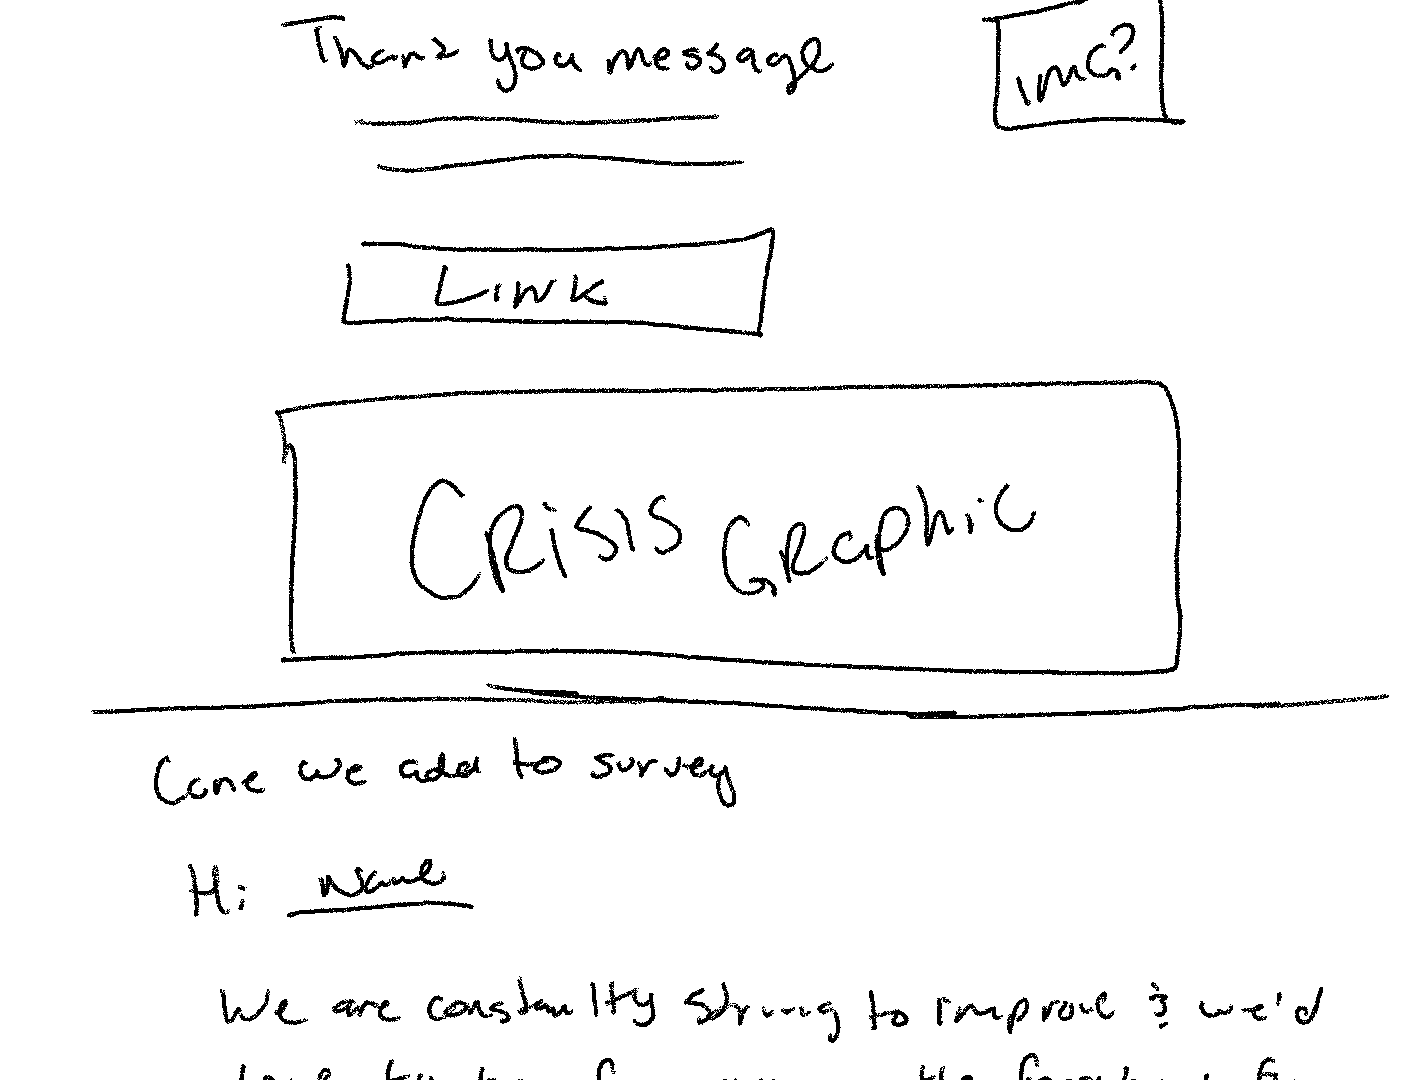 Thank you message
IMG?
Link
Crisis Graphic
Cane we add to survey
Hi Name
We are constanlty striving to improve & we'd